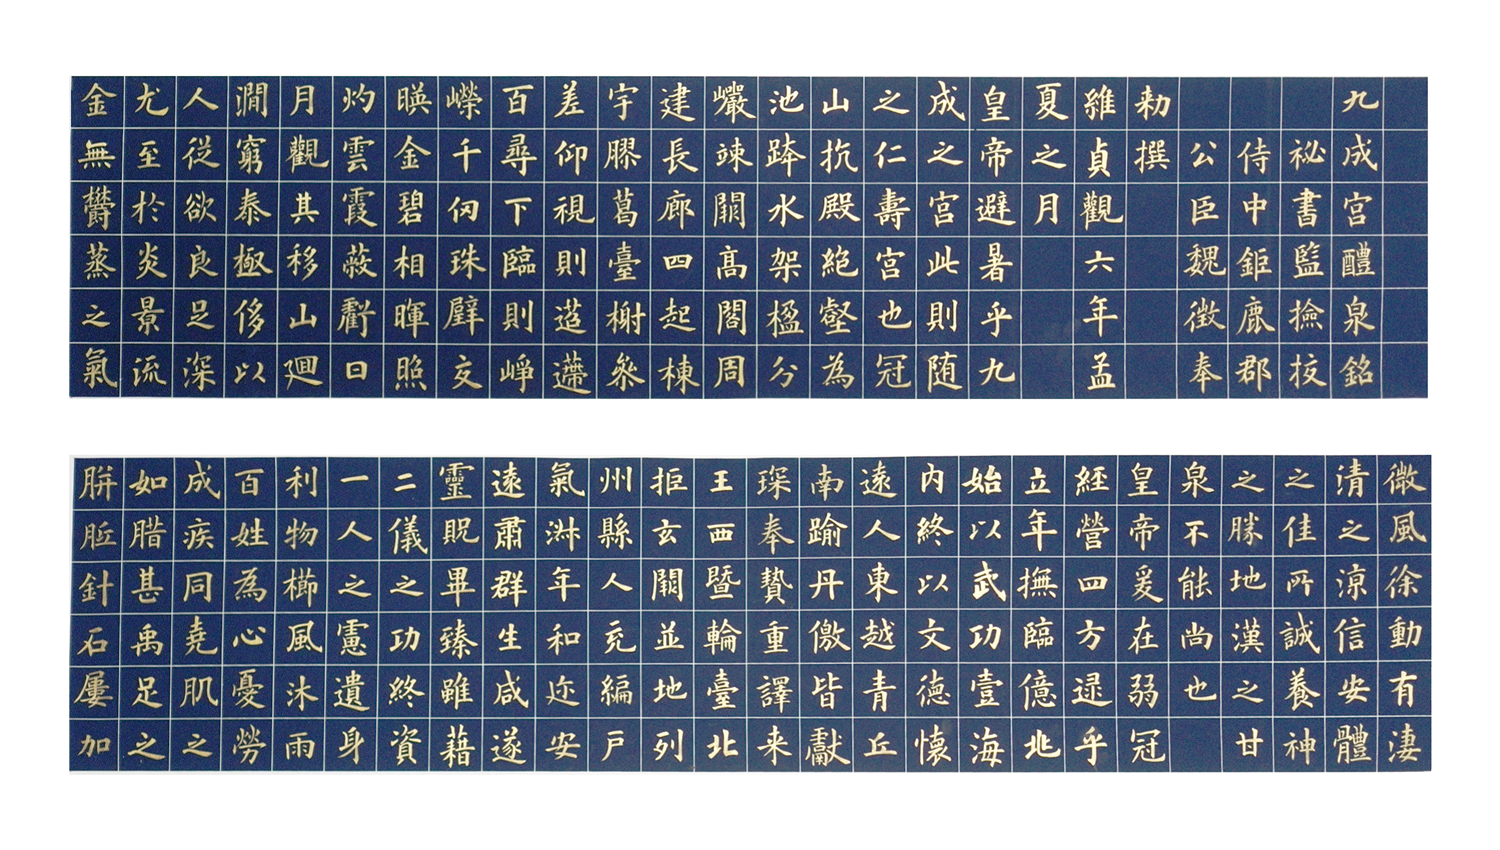 九成宮醴泉銘
祕書監撿挍
侍中鉅鹿郡
公臣魏徵奉
勑撰
維貞觀六年孟
夏之月
皇帝避暑乎九
成之宮此則随
之仁壽宮也冠
山抗殿絕壑為
池跨水架楹分
巖竦闕高閣周
建長廊四起棟
宇膠葛臺榭參
差仰視則迢遰
百尋下臨則崢
嶸千仞珠璧交
暎金碧相暉照
灼雲霞蔽虧日
月觀其移山廻
澗窮泰極侈以
人從欲良足深
尤至於炎景流
金無欝蒸之氣
微風徐動有淒
清之涼信安體
之佳所誠養神
之勝地漢之甘
泉不能尚也
皇帝爰在弱冠
經營四方逮乎
立年撫臨億兆
始以武功壹海
內終以文德懷
遠人東越青丘
南踰丹徼皆獻
琛奉贄重譯来
王西暨輪臺北
拒玄闕並地列
州縣人充編戶
氣淑年和迩安
遠肅群生咸遂
靈貺畢臻雖藉
二儀之功終資
一人之憲遺身
利物櫛風沐雨
百姓為心憂勞
成疾同堯肌之
如腊甚禹足之
胼胝針石屢加